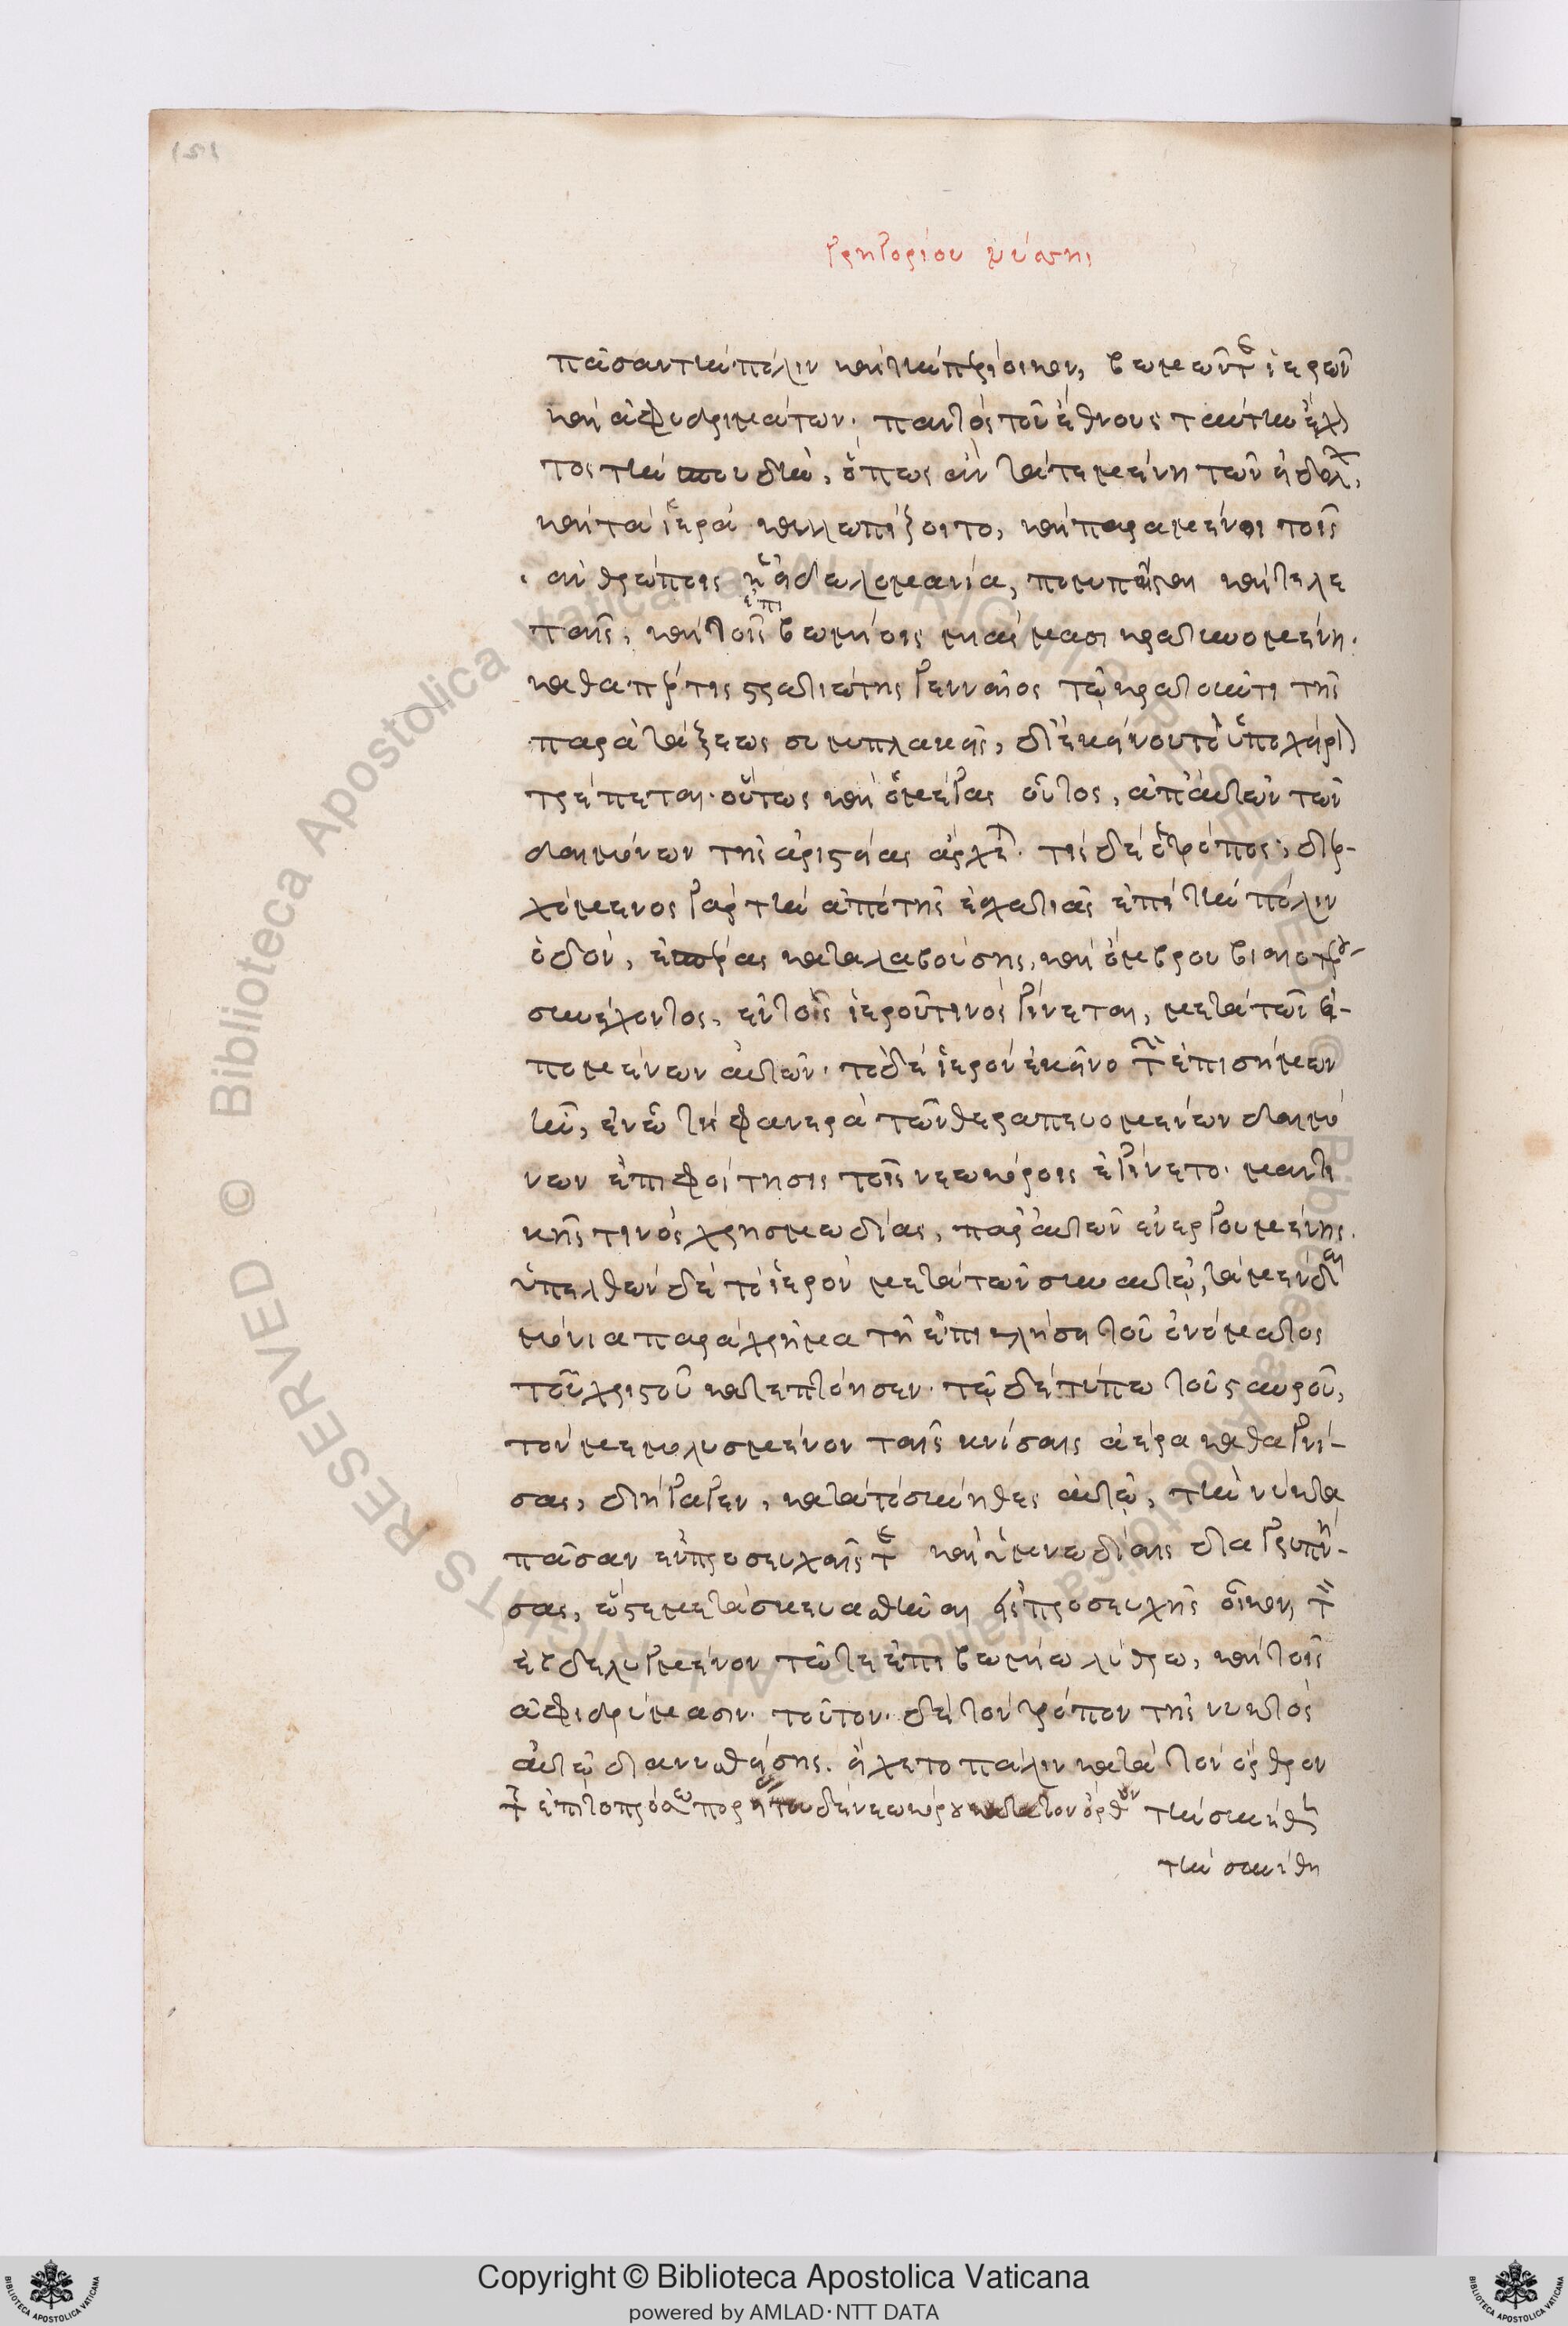 Γρηγορίου νύσης
πᾶσαν τὴν πόλιν καὶ τὴν περίοικον, βωμῶν τὲ ἱερῶν
καὶ ἀφυδριμάτων· παντὸς τοῦ ἔθνους ταύτην ἔχον
τος τὴν σπουδὴν, ὅπως ἂν τά τεμένη τῶν εἰδώλ,
καὶ τὰ ἱερὰ καλλωπίζοιτο, καὶ παραμένοι τοῖς
ἀνθρώποις ἡ εἰδωλομανία, πομπαῖς καὶ τελε
ταῖς, καὶ τοῖς ἐπι βωμίοις μιάσμασι κρατυνομένη·
καθάπερ τις στρατιώτης γενναῖος τῷ κρατοῦντι τῆς
παρατάξεως συμπλακεὶς, δι' ἐκείνου τὸ ὑποχείριον
τρέπεται· οὕτως καὶ ὁ μέγας οὗτος, ἀπ' αὐτῶν τῶν
δαιμόνων τῆς ἀριστείας ἄρχεται· τίς δὲ ὁ τρόπος; διερ-
χόμενος γὰρ τὴν ἀπὸ τῆς ἐσχατιᾶς ἐπὶ τὴν πόλιν
ὁδὸν, ἑσπέρας καταλαβούσης, καὶ ὄμβρου βιαιοτέρου
συνέχοντος, ἐντὸς ἱεροῦ τινὸς γίνεται, μετὰ τῶν ἑ-
πομένων αὐτῶν· τὸ δὲ ἱερὸν ἐκεῖνο τῶν ἐπισήμων
ἦν, ἐν ᾧ τίς φανερὰ τῶν θεραπευομένων δαιμό
νων ἐπιφοίτησις τοῖς νεωκόροις ἐγίνετο· μαντι
κῆς τινὸς χρησμωδίας, παρ' αὐτῶν ἐνεργουμένης.
ὑπελθὼν δὲ τὸ ἱερὸν μετὰ τῶν σὺν αὐτῷ, τὰ μὲν δαι
μόνια παραχρῆμα τῇ ἐπικλήσει τοῦ ὀνόματος
τοῦ χριστοῦ κατεπτόησεν· τῷ δὲ τύπω τοῦ σταυροῦ,
τὸν μεμολυσμένον ταῖς κνίσαις ἀέρα καθαγνί-
σας, διήγαγεν, κατὰ τὸ σύνηθες αὐτῷ, τὴν νύκτα
πᾶσαν ἐν προσευχαῖς τὲ καὶ ὑμνωδίαις διαγρυπνή-
σας, ὥστε μετασκευασθῆναι εἰς προσευχῆς οἶκον τὸν
ἐβδελυγμένον τῷ τε ἐπι βωμίω λύθρω, καὶ τοῖς
ἀφιδρύμασιν· τοῦτον· δὲ τὸν τρόπον τῆς νυκτὸς
αὐτῷ διανυσθείσης. εἴχετο πάλιν κατὰ τὸν ὄρθρον
τῆς ἐπὶ τὸ πρόσω πορείας τοῦ δὲ νεωκόρου κατὰ τὸν ὄρθρον τὴν συνήθη
τὴν συνήθη